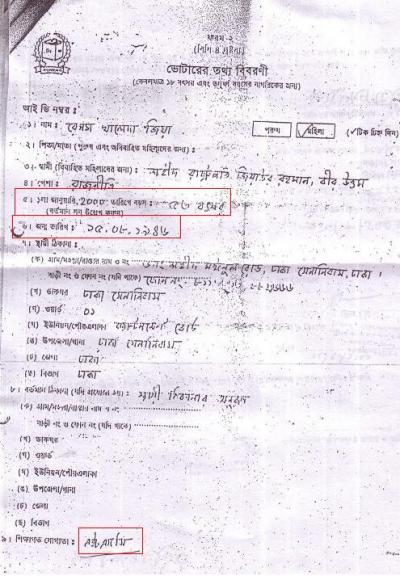 ফরম-২
(বিধি ৪ দ্রষ্টব্য)
ভোটারের তথ্য বিবরণী
(কেবলমাত্র ১৮ বৎসর এবং তদূর্ধ্ব বয়সের নাগরিকের জন্য)
আই ডি নম্বর :
১। নাম : বেগম খালেদা জিয়া পুরুষ মহিলা (√টিক চিহ্ন দিন)
২। পিতা/মাতা (পুরুষ এবং অবিবাহিত মহিলাদের জন্য) :
৩। স্বামী (বিবাহিত মহিলাদের জন্য) : শহীদ রাষ্ট্রপতি জিয়াউর রহমান, বীর উত্তম
৪। পেশা : রাজনীতি
৫। ১লা জানুয়ারি, 2000 তারিখে বয়স :
(বর্তমান সন উল্লেখ করুন)
৬। জন্ম তারিখ : ১৫.০৮.১৯৪৬
৭। স্থায়ী ঠিকানা :
(ক) গ্রাম/মহল্লা/রাস্তার নাম ও নং শহীদ মইনুল রোড, ঢাকা সেনানিবাস, ঢাকা।
বাড়ী নং ও ফোন নং (যদি থাকে) ফোন নং-
(খ) ডাকঘর ঢাকা সেনানিবাস
(গ) ওয়ার্ড ০১
(ঘ) ইউনিয়ন/পৌরএলাকা ক্যান্টনমেন্ট বোর্ড
(ঙ) উপজেলা/থানা ঢাকা সেনানিবাস
(চ) জেলা ঢাকা
(ছ) বিভাগ ঢাকা
৮। বর্তমান ঠিকানা (যদি প্রযোজ্য হয়) : স্থায়ী ঠিকানার অনুরূপ
(ক) গ্রাম/মহল্লা/রাস্তার নাম ও নং
বাড়ী নং ও ফোন নং (যদি থাকে)
(খ) ডাকঘর
(গ) ওয়ার্ড
(ঘ) ইউনিয়ন/পৌরএলাকা
(ঙ) উপজেলা/থানা
(চ) জেলা
(ছ) বিভাগ
৯। শিক্ষাগত যোগ্যতা :